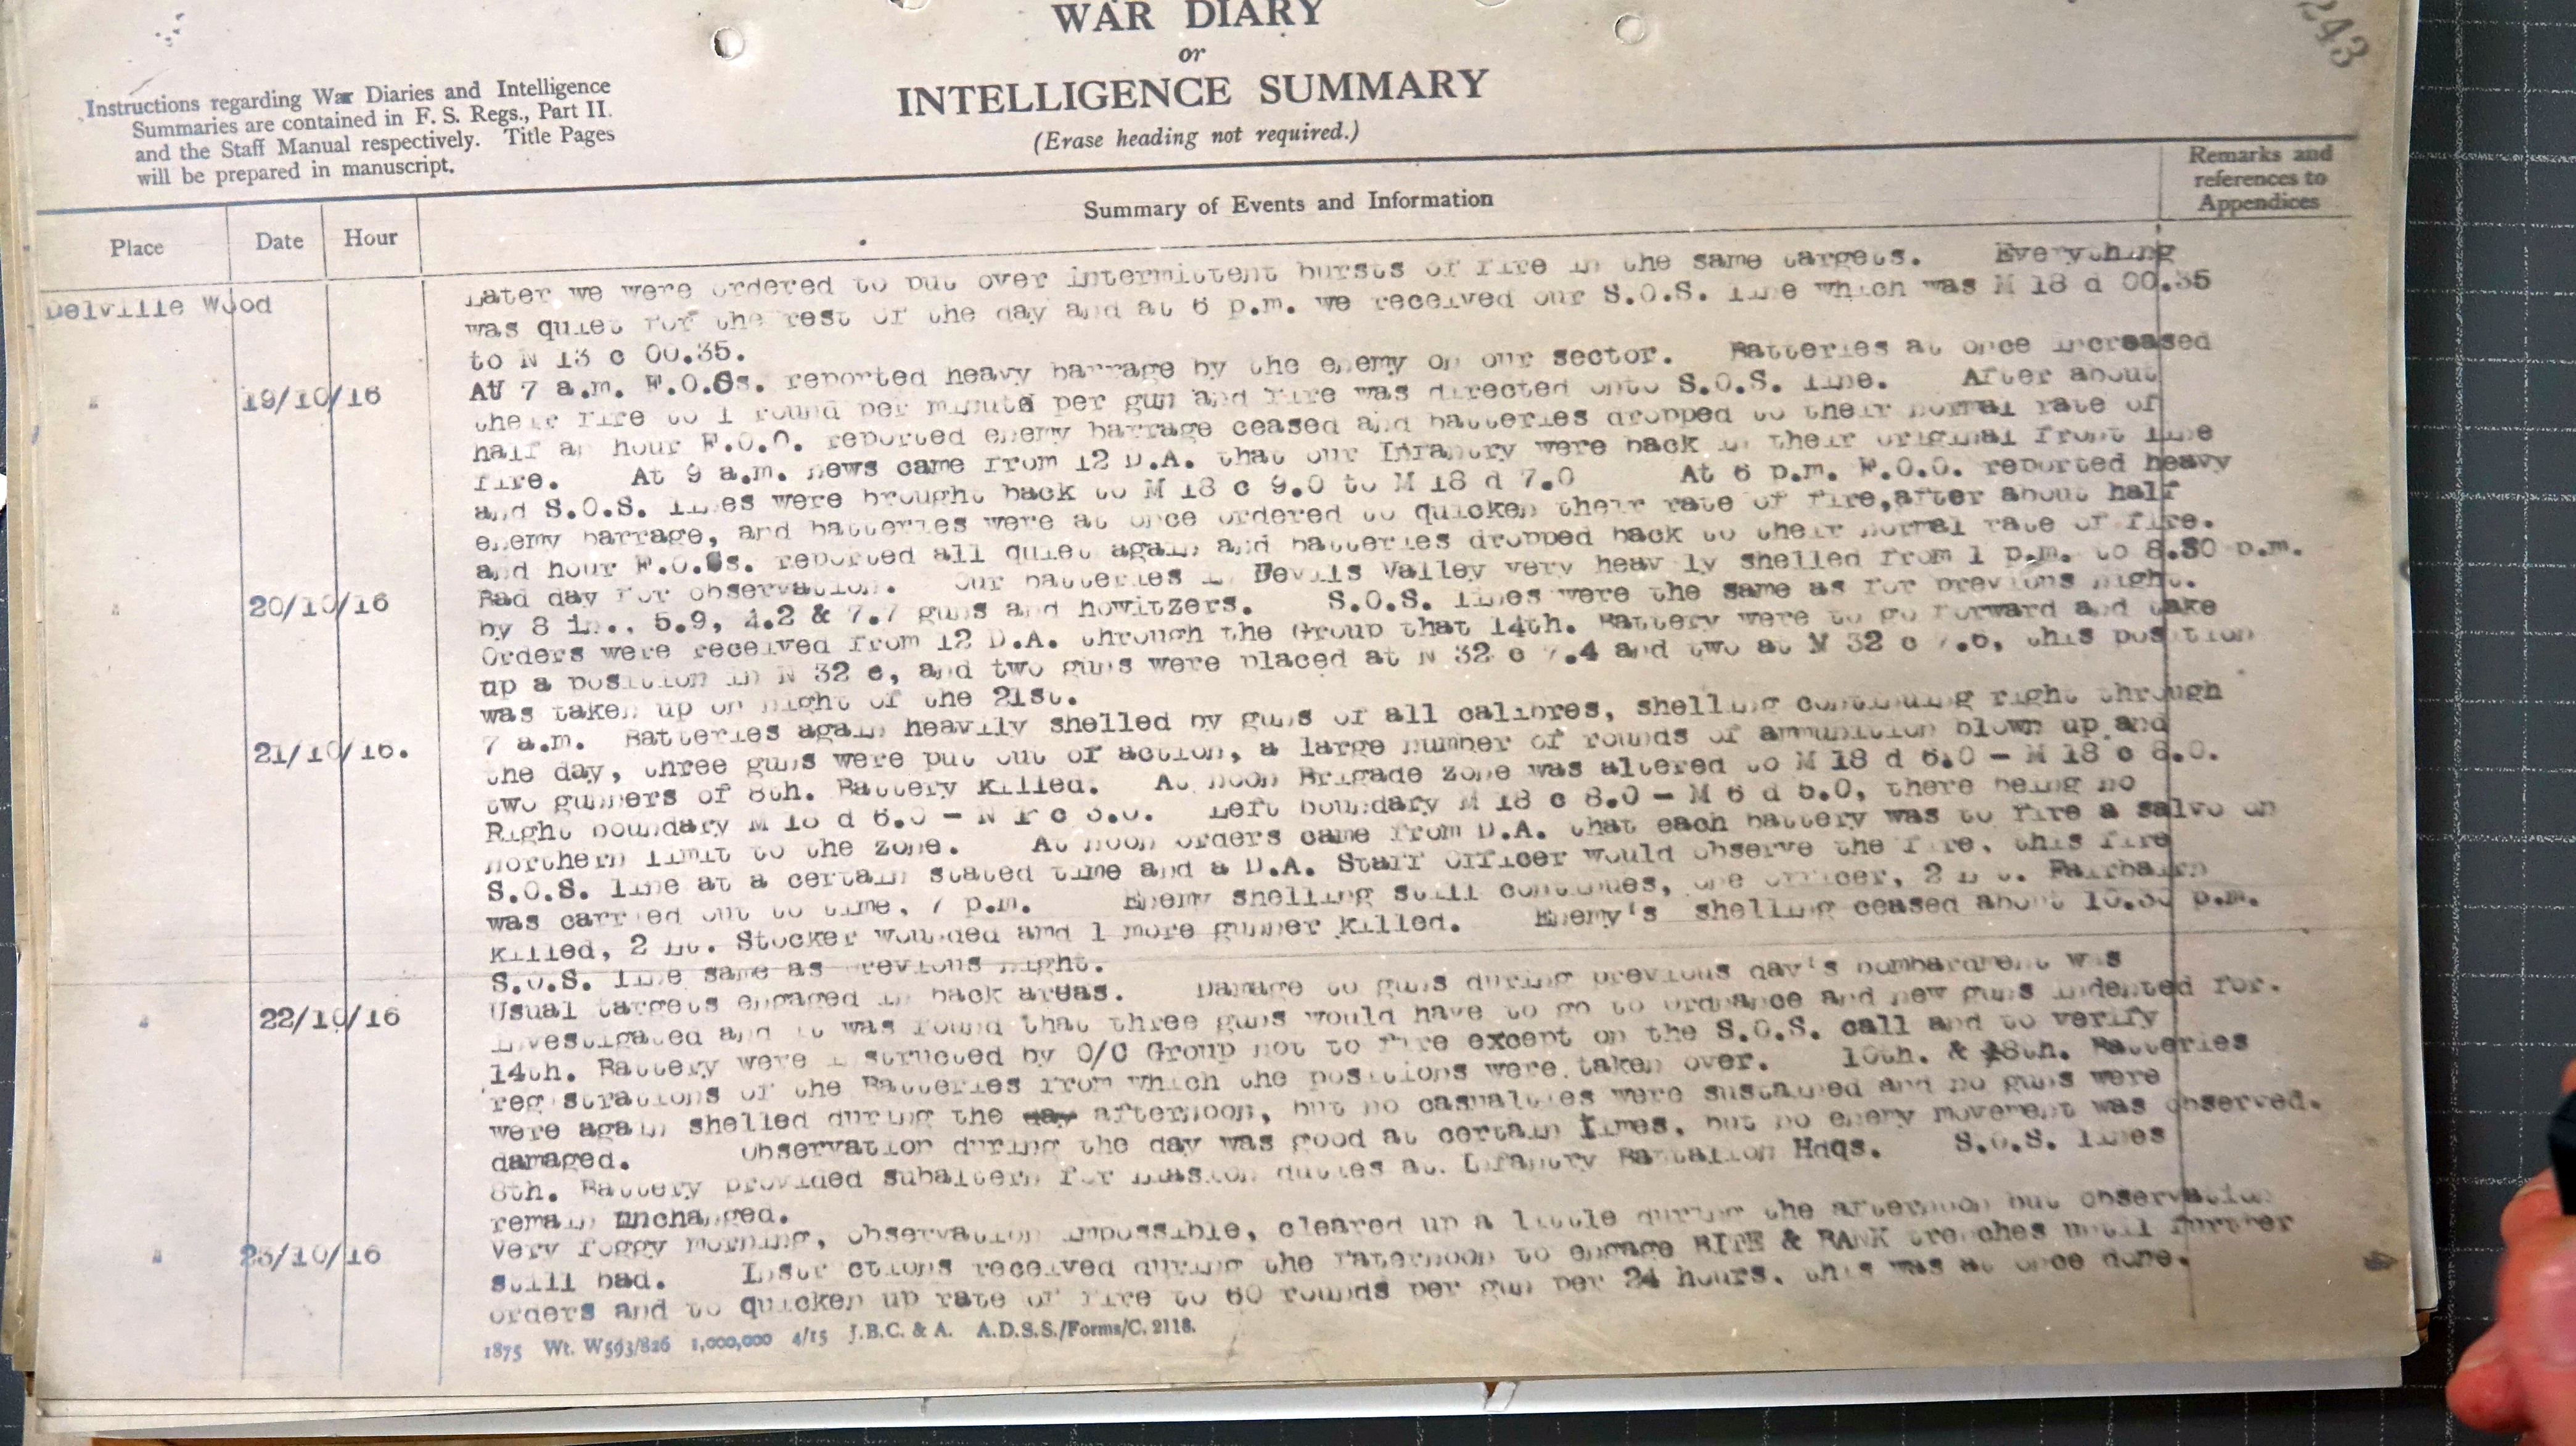 243
WAR DIARY
or
INTELLIGENCE SUMMARY
(Erase heading not required.)
Instructions regarding War Diaries and Intelligence
Summaries are contained in F. S. Regs., Part II.
and the Staff Manual respectively. Title Pages
will be prepared in manuscript.
Place
Date
Hour
Summary of Events and Information
Remarks and
references to
Appendices
Delville Wood
Later we were ordered to put over intermittent bursts of fire in the same targets. Everything
was quiet for the rest of the day and at 6 p.m. we received our S.O.S. line which was M 18 d 00.35
to N 13 c 00.35.
" 19/10/16
At 7 a.m. F.O.Os. reported heavy barrage by the enemy on our sector. Batteries at once increased
their fire to 1 round per minute per gun and fire was directed onto S.O.S. line. After about
half an hour F.O.O. reported enemy barrage ceased and batteries dropped to their normal rate of
fire. At 9 a.m. news came from 12 D.A. that our Infantry were back in their original front line
and S.O.S. lines were brought back to M 18 c 9.0 to M 18 d 7.0 At 6 p.m. F.O.O. reported heavy
enemy barrage, and batteries were at once ordered to quicken their rate of fire,after about half
and hour F.O.Os. reported all quiet again and batteries dropped back to their normal rate of fire.
" 20/10/16
Bad day for observation. Our batteries in Devils Valley very heav ly shelled from 1 p.m. to 8.30 p.m.
by 8 in., 5.9, 4.2 & 7.7 guns and howitzers. S.O.S. lines were the same as for previous night.
Orders were received from 12 D.A. through the Group that 14th. Battery were to go forward and take
up a position in N 32 c, and two guns were placed at N 32 c 7.4 and two at N 32 c 7.6, this position
was taken up on night of the 21st.
21/10/16.
7 a.m. Batteries again heavily shelled by guns of all calibres, shelling continuing right through
the day, three guns were put out of action, a large number of rounds of ammunition blown up and
two gunners of 8th. Battery killed. At noon Brigade zone was altered to M 18 d 6.0 - M 18 c 8.0.
Right boundary M 18 d 6.0 - N c 3.0. Left boundary M 18 c 8.0 - M 6 d 5.0, there being no
northern limit to the zone. At noon orders came from D.A. that each battery was to fire a salvo on
S.O.S. line at a certain stated time and a D.A. Staff Officer would observe the fire, this fire
was carried out to time, 7 p.m. Enemy shelling still continues, one officer, 2 Lt. Fairbairn
killed, 2 Lt. Stocker wounded and 1 more gunner killed. Enemy's shelling ceased about 10.30 p.m.
S.O.S. line same as previous night.
" 22/10/16
Usual targets engaged in back areas. Damage to guns during previous day's bombardment was
investigated and it was found that three guns would have to go to ordnance and new guns indented for.
14th. Battery were instructed by O/C Group not to fire except on the S.O.S. call and to verify
registrations of the Batteries from which the positions were taken over. 10th. & 18th. Batteries
were again shelled during the day afternoon, but no casualties were sustained and no guns were
damaged. Observation during the day was good at certain times, but no enemy movement was observed.
8th. Battery provided subaltern for liasion duties at Infantry Battalion Hdqs. S.O.S. lines
remain unchanged.
" 23/10/16
Very foggy morning, observation impossible, cleared up a little during the afternoon but observation
still bad. Instr ctions received during the faternoon to engage BITE & BANK trenches until further
orders and to quicken up rate of fire to 60 rounds per gun per 24 hours, this was at once done.
1875 Wt. W593/826 1,000,000 4/15 J.B.C. & A. A.D.S.S./Forms/C. 2118.